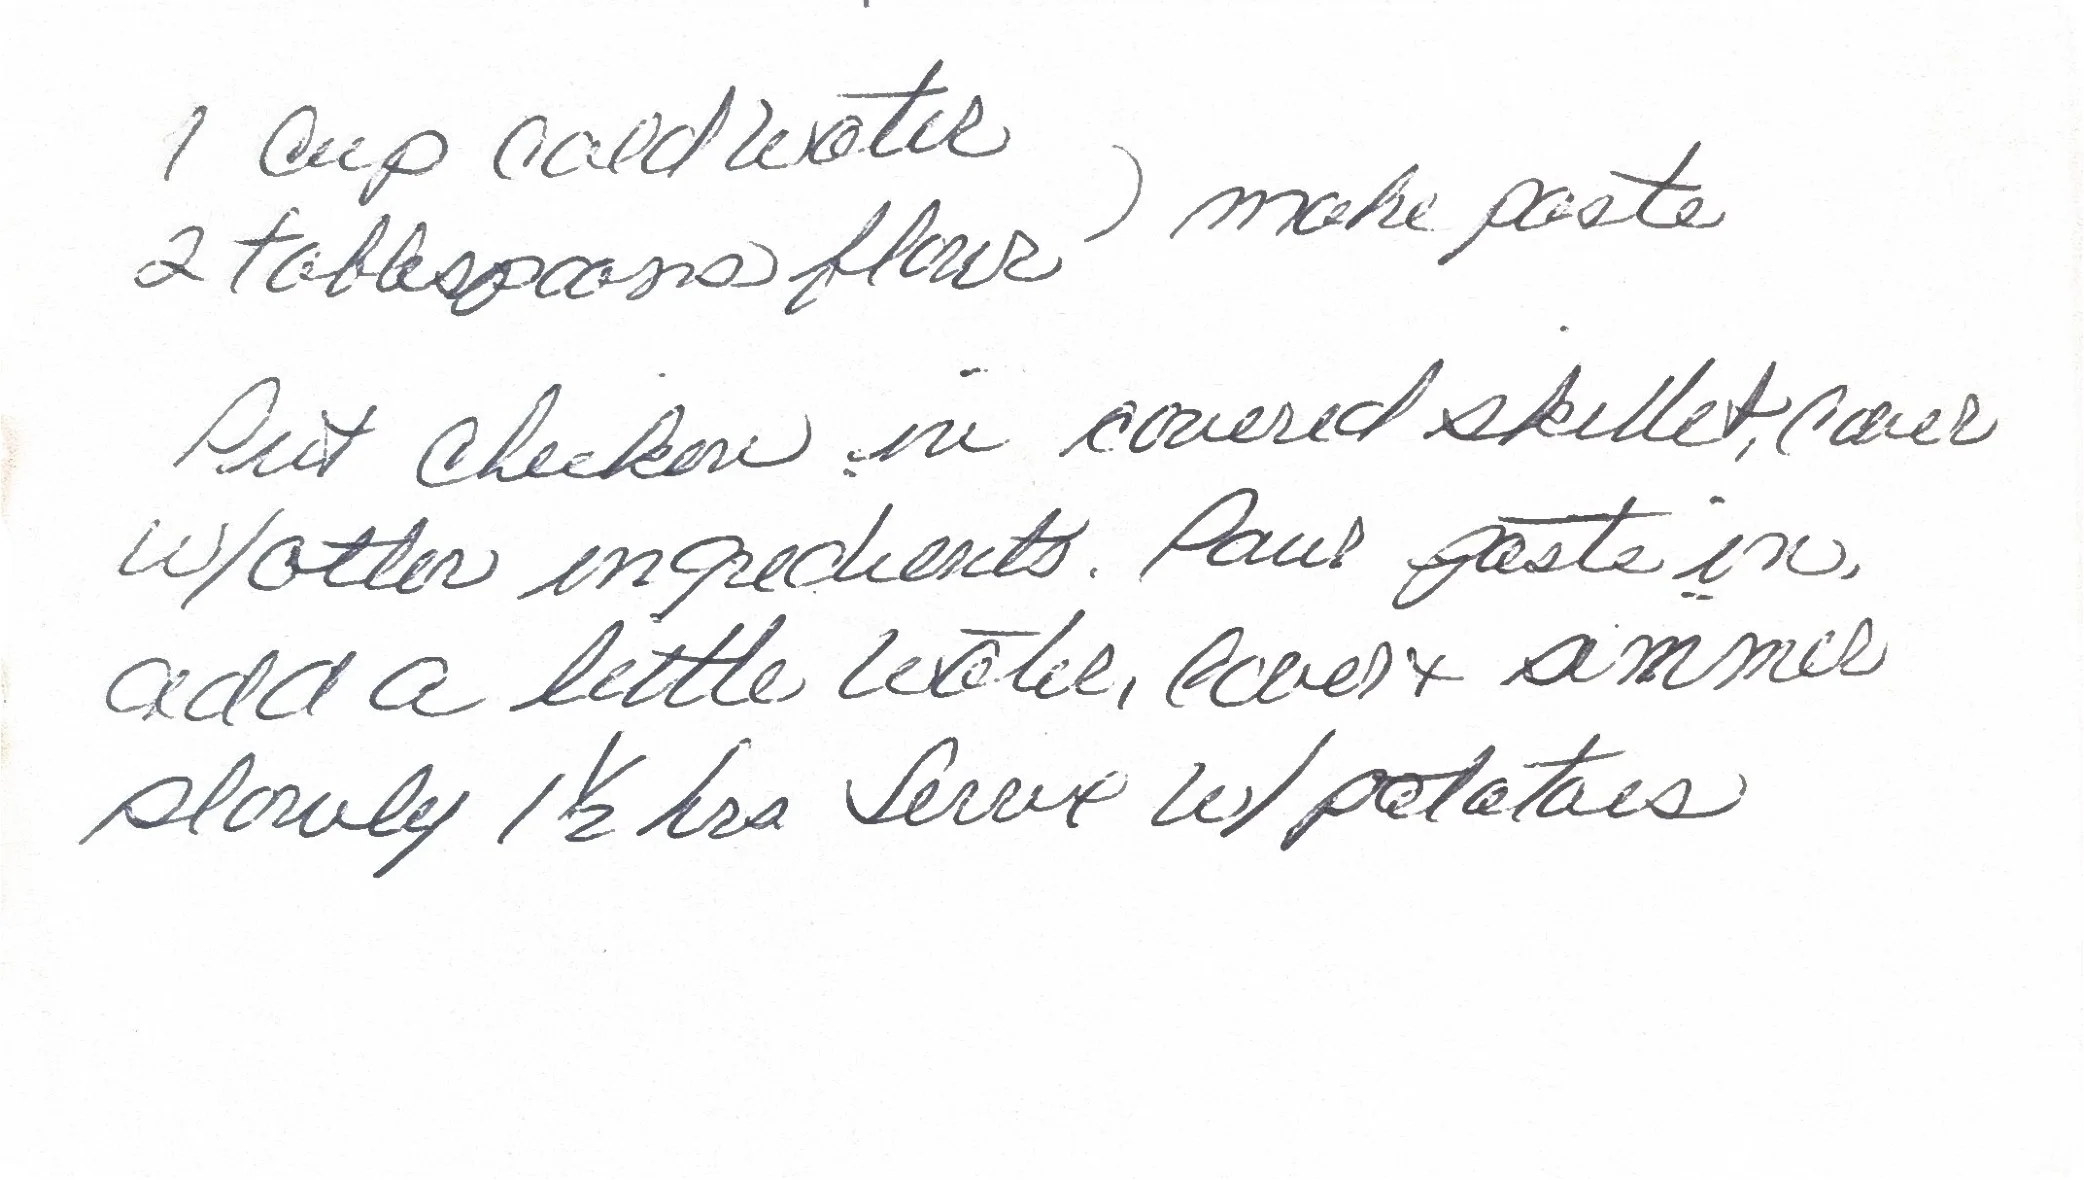 1 Cup Cold water
2 tablespoons flour ) make paste
Put chicken in covered skillet, cover
w/other ingredients. Pour paste in,
add a little water, cover + simmer
slowly 1 1/2 hrs Serve w/ potatoes